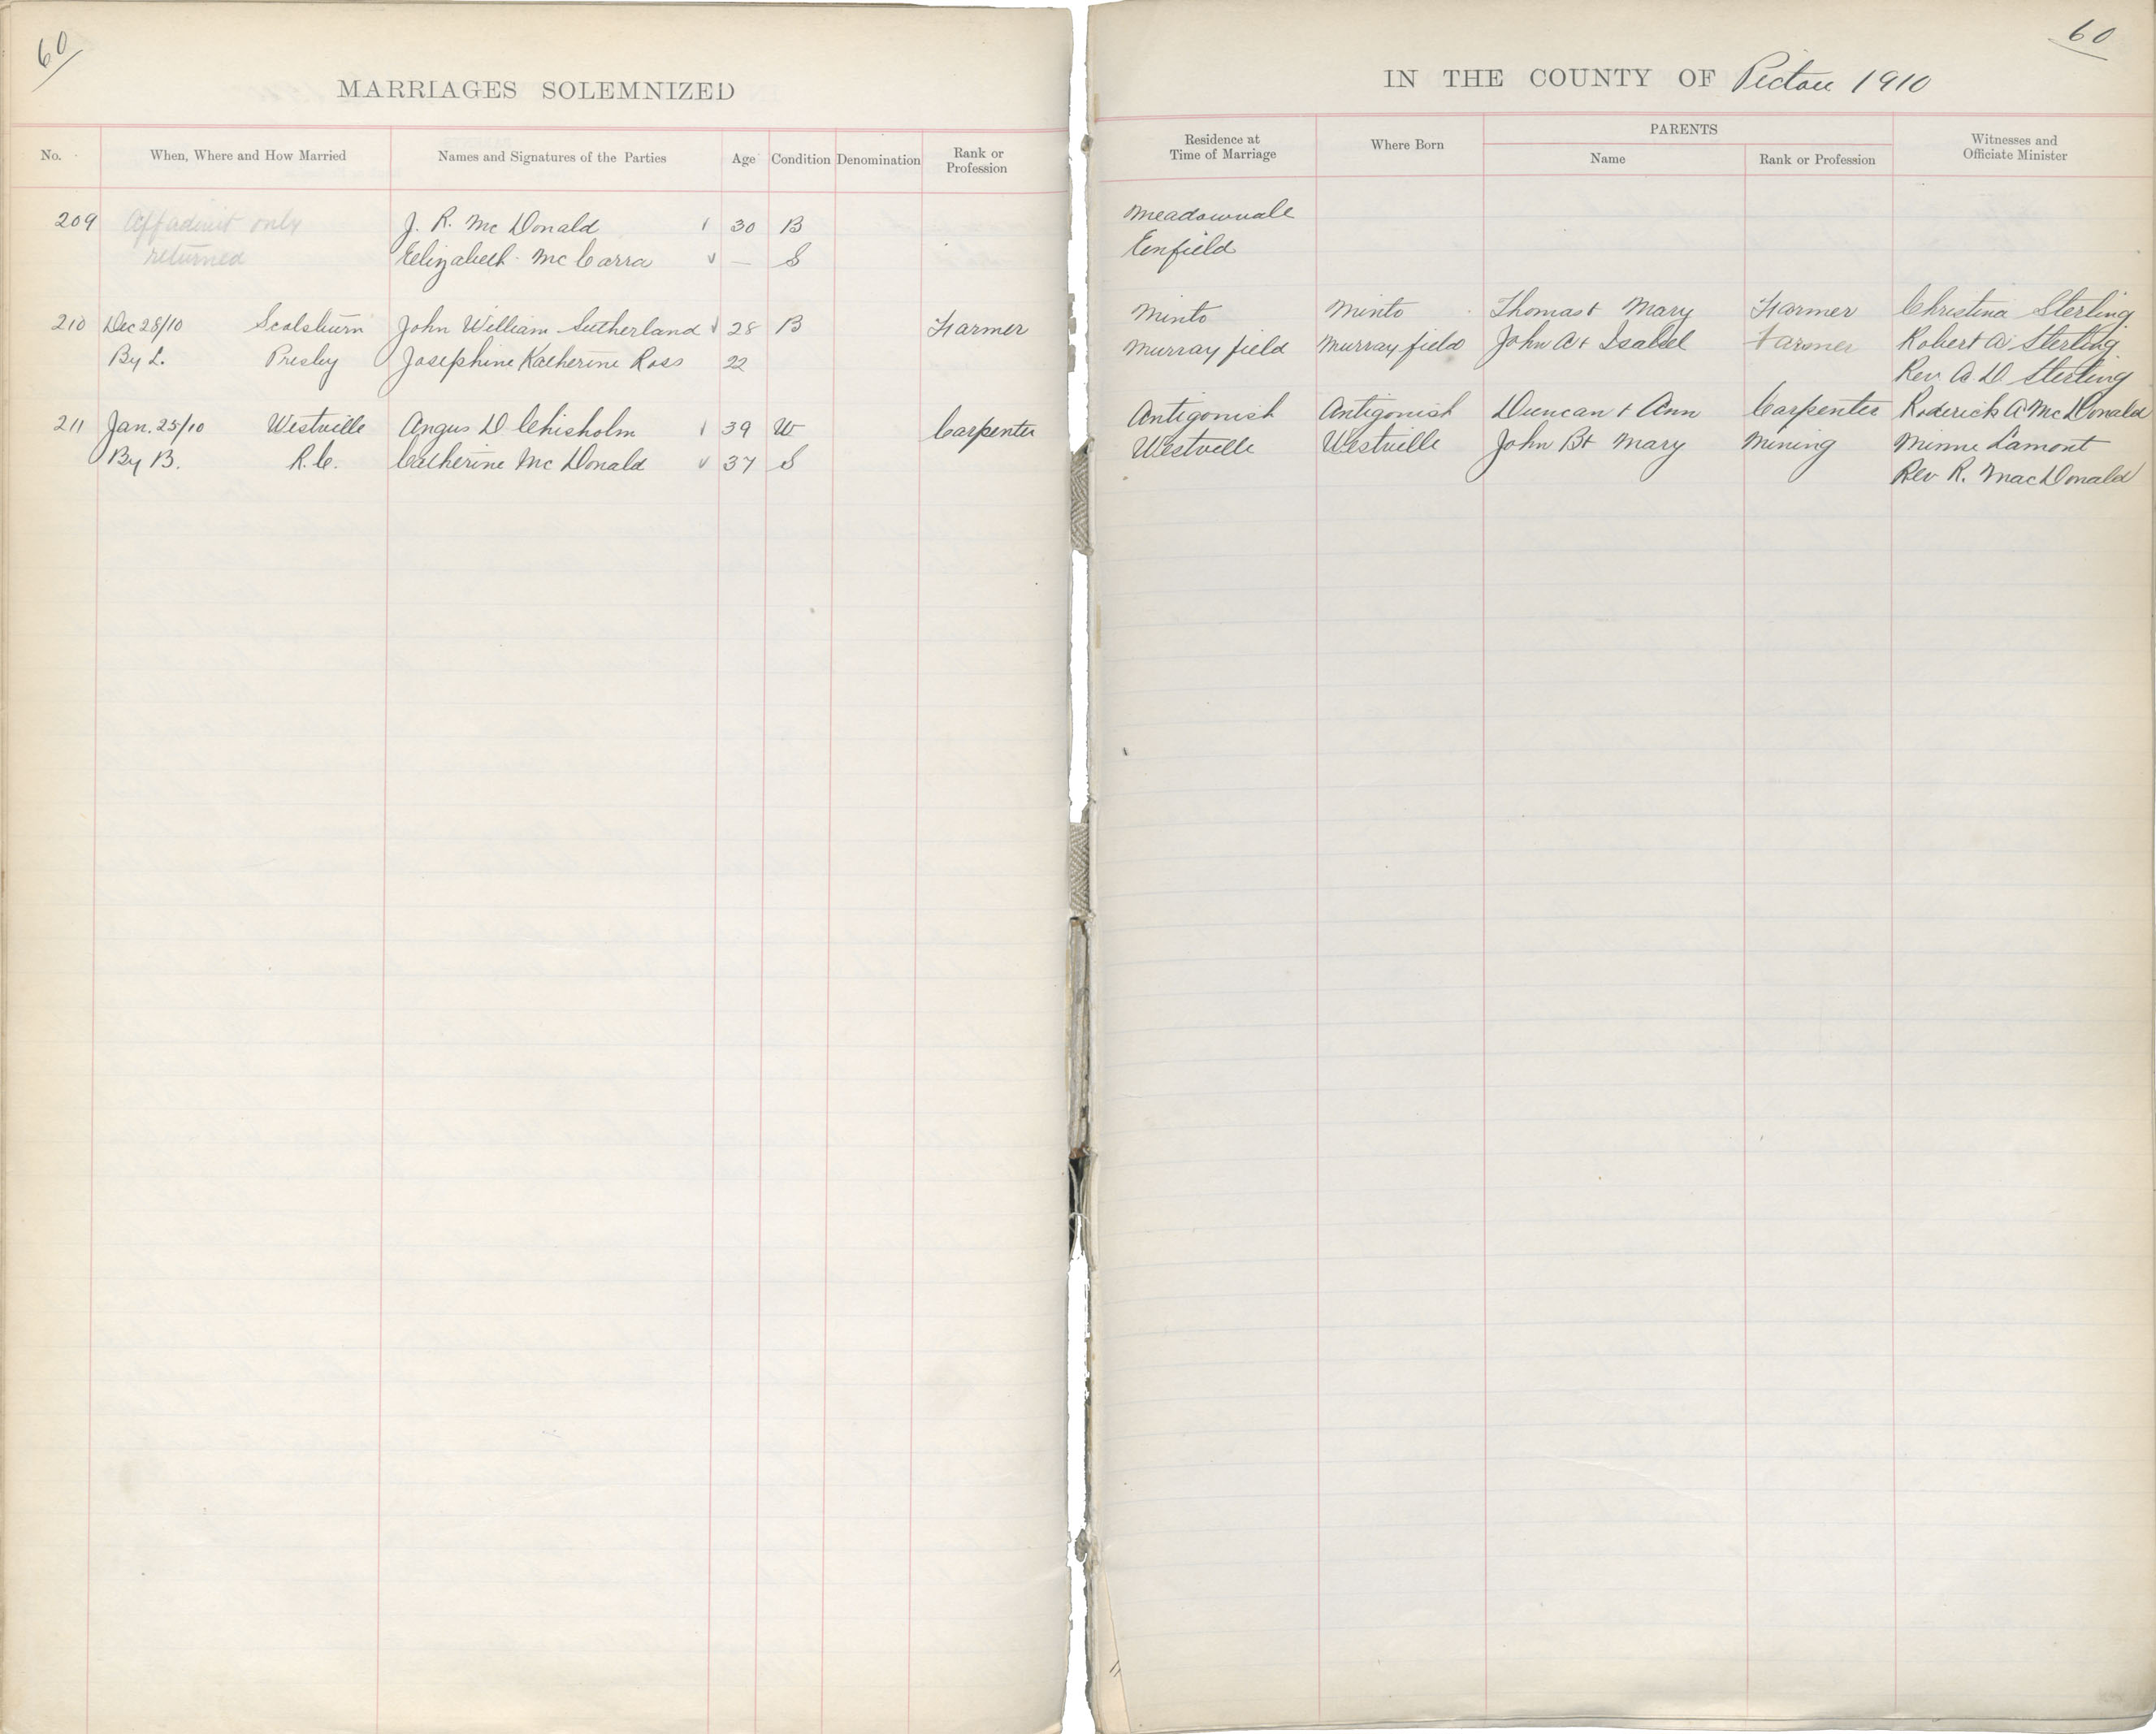 60
MARRIAGES SOLEMNIZED
No. When, Where and How Married Names and Signatures of the Parties Age Condition Denomination Rank or Profession
209 Affadavit only J. R. McDonald 30 B
returned Elizabeth McCarra — S
210 Dec 28/10 Scotsburn John William Sutherland 28 B Farmer
By L. Presby Josephine Katherine Ross 22
211 Jan. 25/10 Westville Angus D Chisholm 39 W Carpenter
By B. R.C. Catherine McDonald 37 S
60
IN THE COUNTY OF Pictou 1910
Residence at Time of Marriage Where Born PARENTS Name Rank or Profession Witnesses and Officiate Minister
Meadowvale
Enfield
Minto Minto Thomas + Mary Farmer Christina Sterling
Murrayfield Murrayfield John A + Isabel Farmer Robert A Sterling
Rev A D Sterling
Antigonish Antigonish Duncan + Ann Carpenter Roderick A McDonald
Westville Westville John B + Mary Mining Minne Lamont
Rev R. MacDonald